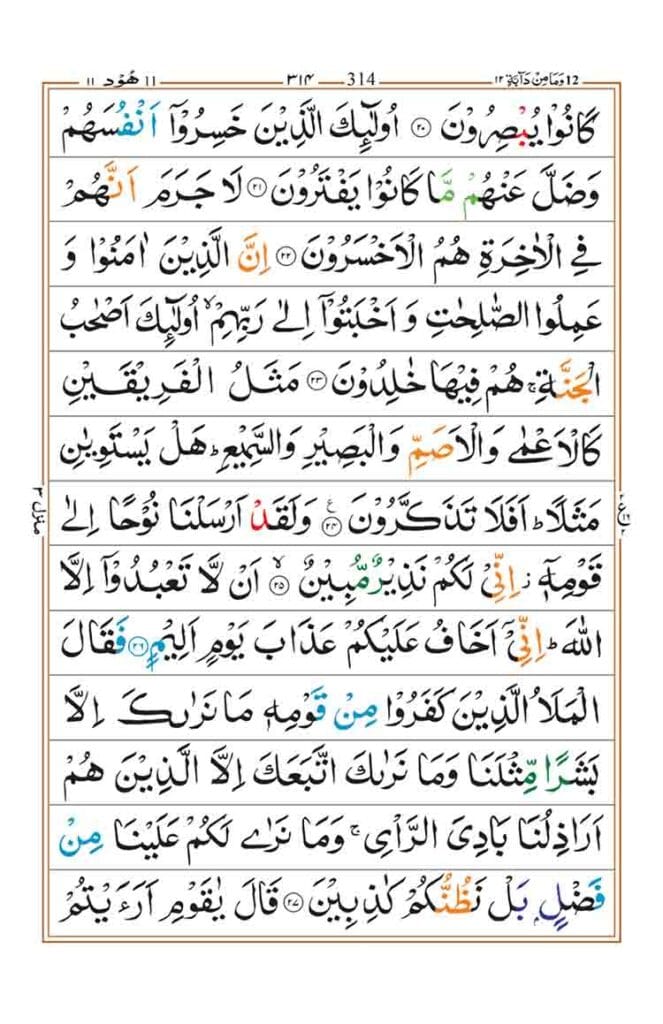 وَمَا مِنْ دَآبَّةٍ ١٢ 12 314 ٣١٤ هُوْد ١١ 11
كَانُوْا يُبْصِرُوْنَ ۝٢٠ اُولٰٓئِكَ الَّذِيْنَ خَسِرُوْٓا اَنْفُسَهُمْ
وَضَلَّ عَنْهُمْ مَّا كَانُوْا يَفْتَرُوْنَ ۝٢١ لَا جَرَمَ اَنَّهُمْ
فِي الْاٰخِرَةِ هُمُ الْاَخْسَرُوْنَ ۝٢٢ اِنَّ الَّذِيْنَ اٰمَنُوْا وَ
عَمِلُوا الصّٰلِحٰتِ وَ اَخْبَتُوْٓا اِلٰى رَبِّهِمْ ۙ اُولٰٓئِكَ اَصْحٰبُ
الْجَنَّةِ ۚ هُمْ فِيْهَا خٰلِدُوْنَ ۝٢٣ مَثَلُ الْفَرِيْقَيْنِ
كَالْاَعْمٰى وَالْاَصَمِّ وَالْبَصِيْرِ وَالسَّمِيْعِ ؕ هَلْ يَسْتَوِيٰنِ
مَثَلًا ؕ اَفَلَا تَذَكَّرُوْنَ ۝٢٤ ع وَلَقَدْ اَرْسَلْنَا نُوْحًا اِلٰى
قَوْمِهٖٓ ز اِنِّيْ لَكُمْ نَذِيْرٌ مُّبِيْنٌ ۝٢٥ ۙ اَنْ لَّا تَعْبُدُوْٓا اِلَّا
اللّٰهَ ؕ اِنِّيْٓ اَخَافُ عَلَيْكُمْ عَذَابَ يَوْمٍ اَلِيْمٍ ۝٢٦ فَقَالَ
الْمَلَاُ الَّذِيْنَ كَفَرُوْا مِنْ قَوْمِهٖ مَا نَرٰىكَ اِلَّا
بَشَرًا مِّثْلَنَا وَمَا نَرٰىكَ اتَّبَعَكَ اِلَّا الَّذِيْنَ هُمْ
اَرَاذِلُنَا بَادِيَ الرَّاْيِ ۚ وَمَا نَرٰى لَكُمْ عَلَيْنَا مِنْ
فَضْلٍۭ بَلْ نَظُنُّكُمْ كٰذِبِيْنَ ۝٢٧ قَالَ يٰقَوْمِ اَرَءَيْتُمْ
منزل ٣